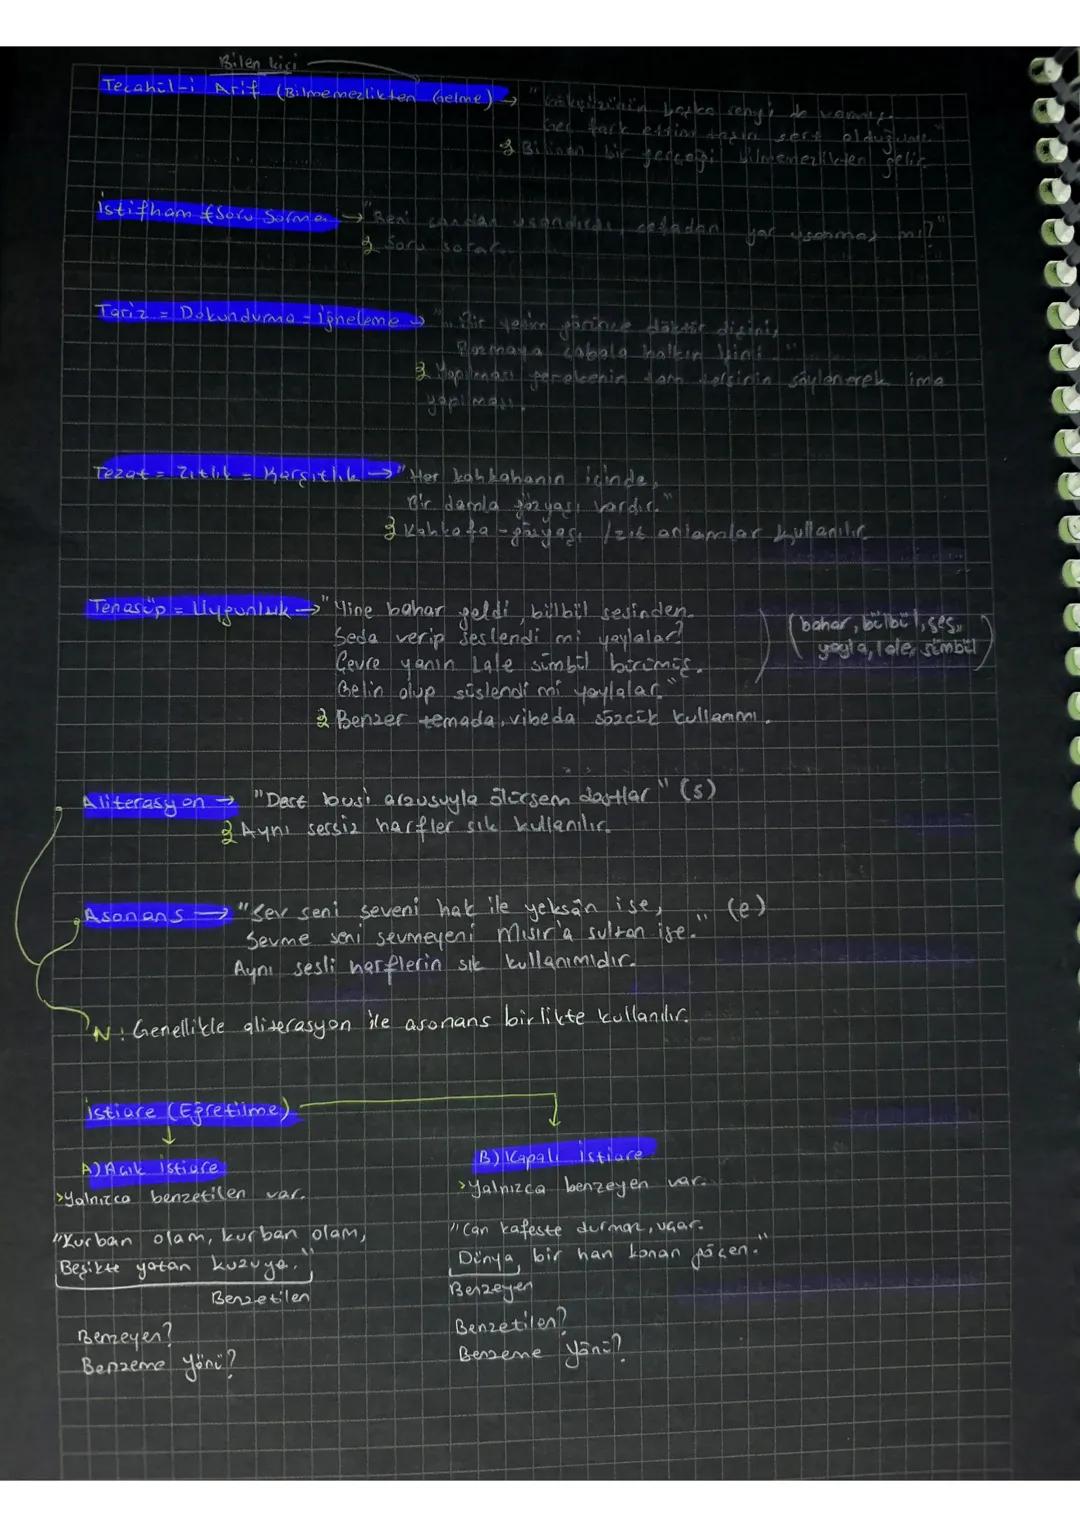 Bilen kişi
Tecahül-i Arif (Bilmemezlikten Gelme) → "Gökyüzünün başka rengi de varmış.
Geç fark ettim taşın sert olduğunu."
Bilinen bir gerçeği bilmemezlikten gelir.
İstifham = Soru Sorma → "Beni candan usandırdı, cefadan yar usanmaz mı?"
Soru sorar.
Tariz = Dokundurma = İğneleme → "Bir yetim görünce döktür dişini,
Bozmaya çabala halkın işini."
Yapılması gerekenin tam tersinin söylenerek ima
yapılması.
Tezat = Zıtlık = Karşıtlık → "Her kahkahanın içinde,
Bir damla gözyaşı vardır."
Kahkaha - gözyaşı / zıt anlamlar kullanılır.
Tenasüp = Uygunluk → "Yine bahar geldi, bülbül sesinden.
Seda verip seslendi mi yaylalar?
Çevre yanın Lale sümbül bürümüş.
Gelin olup süslendi mi yaylalar."
(bahar, bülbül, ses,
yayla, lale, sümbül)
Benzer temada, vibeda sözcük kullanımı.
Aliterasyon → "Dest busi arzusuyla ölürsem dostlar" (s)
Aynı sessiz harfler sık kullanılır.
Asonans → "Sev seni seveni hak ile yeksân ise, (e)
Sevme seni sevmeyeni Mısır'a sultan ise."
Aynı sesli harflerin sık kullanımıdır.
N: Genellikle aliterasyon ile asonans birlikte kullanılır.
İstiare (Eğretilme)
A) Açık İstiare
>Yalnızca benzetilen var.
"Kurban olam, kurban olam,
Beşikte yatan kuzuya."
Benzetilen
Benzeyen?
Benzeme Yönü?
B) Kapalı İstiare
>Yalnızca benzeyen var.
"Can kafeste durmaz, uçar.
Dünya bir han konan göçen."
Benzeyen
Benzetilen?
Benzeme Yönü?